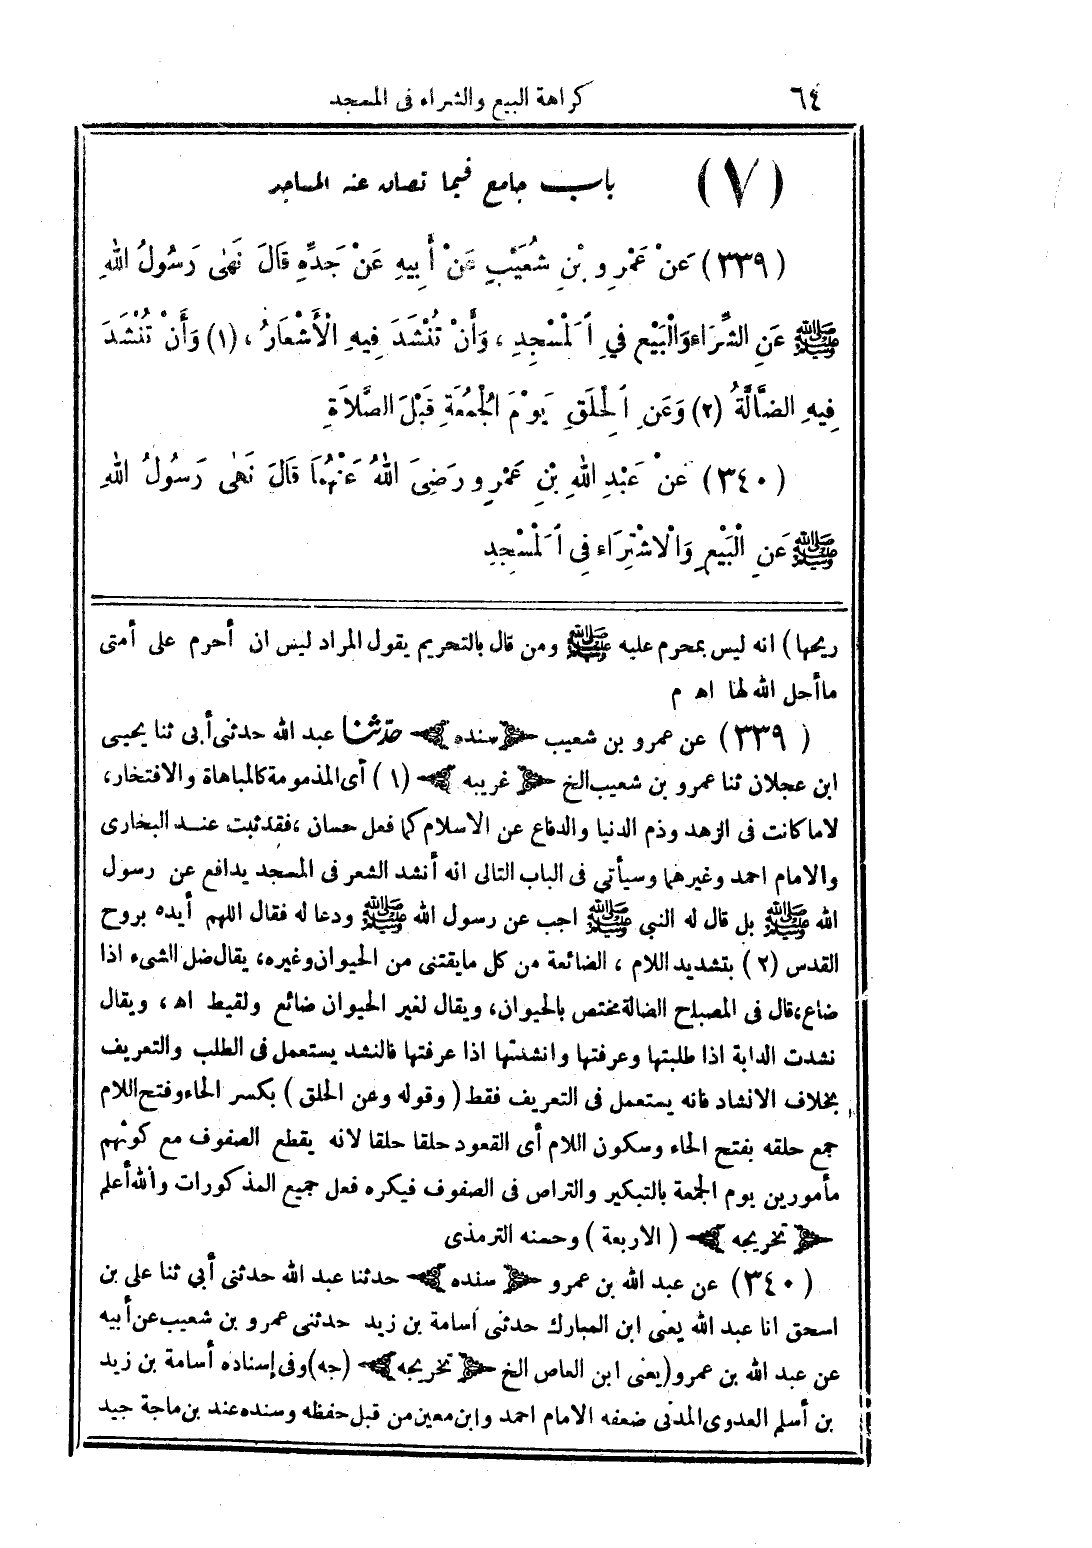 ٦٤ كراهة البيع والشراء فى المسجد
(٧) باب جامع فيما تصان عنه المساجد
(٣٣٩) عَنْ عَمْرِو بْنِ شُعَيْبٍ عَنْ أَبِيهِ عَنْ جَدِّهِ قَالَ نَهَى رَسُولُ اللهِ
ﷺ عَنِ الشِّرَاءِ وَالْبَيْعِ فِي الْمَسْجِدِ ، وَأَنْ تُنْشَدَ فِيهِ الْأَشْعَارُ ، (١) وَأَنْ تُنْشَدَ
فِيهِ الضَّالَّةُ (٢) وَعَنِ الْحِلَقِ يَوْمَ الْجُمُعَةِ قَبْلَ الصَّلَاةِ
(٣٤٠) عَنْ عَبْدِ اللهِ بْنِ عَمْرٍو رَضِيَ اللهُ عَنْهُمَا قَالَ نَهَى رَسُولُ اللهِ
ﷺ عَنِ الْبَيْعِ وَالْاشْتِرَاءِ فِى الْمَسْجِدِ
ريحها) انه ليس بمحرم عليه ﷺ ومن قال بالتحريم يقول المراد ليس ان أحرم على أمتى
ماأحل الله لها اه م
(٣٣٩) عن عمرو بن شعيب ﴿سنده﴾ حدّثنا عبد الله حدثنى أبى ثنا يحيى
ابن عجلان ثنا عمرو بن شعيب الخ ﴿غريبه﴾ (١) أى المذمومة كالمباهاة والافتخار،
لاما كانت فى الزهد وذم الدنيا والدفاع عن الاسلام كما فعل حسان ،فقد ثبت عند البخارى
والامام احمد وغيرهما وسيأتى فى الباب التالى انه أنشد الشعر فى المسجد يدافع عن رسول
الله ﷺ بل قال له النبي ﷺ اجب عن رسول الله ﷺ ودعا له فقال اللهم أيده بروح
القدس (٢) بتشديد اللام ، الضائعة من كل مايقتنى من الحيوان وغيره، يقال ضل الشىء اذا
ضاع،قال فى المصباح الضالة مختص بالحيوان، ويقال لغير الحيوان ضائع ولقيط اه ، ويقال
نشدت الدابة اذا طلبتها وعرفتها وانشدتها اذا عرفتها فالنشد يستعمل فى الطلب والتعريف
بخلاف الانشاد فانه يستعمل فى التعريف فقط (وقوله وعن الحلق) بكسر الحاء وفتح اللام
جمع حلقه بفتح الحاء وسكون اللام أى القعود حلقا حلقا لانه يقطع الصفوف مع كونهم
مأمورين يوم الجمعة بالتبكير والتراص فى الصفوف فيكره فعل جميع المذكورات والله أعلم
﴿تخريجه﴾ (الاربعة) وحسنه الترمذى
(٣٤٠) عن عبد الله بن عمرو ﴿سنده﴾ حدثنا عبد الله حدثنى أبي ثنا على بن
اسحق انا عبد الله يعنى ابن المبارك حدثنى أسامة بن زيد حدثنى عمرو بن شعيب عن أبيه
عن عبد الله بن عمرو (يعنى ابن العاص الخ ﴿تخريجه﴾ (جه) وفى إسناده أسامة بن زيد
بن أسلم العدوى المدنى ضعفه الامام احمد وابن معين من قبل حفظه وسنده عند بن ماجة جيد